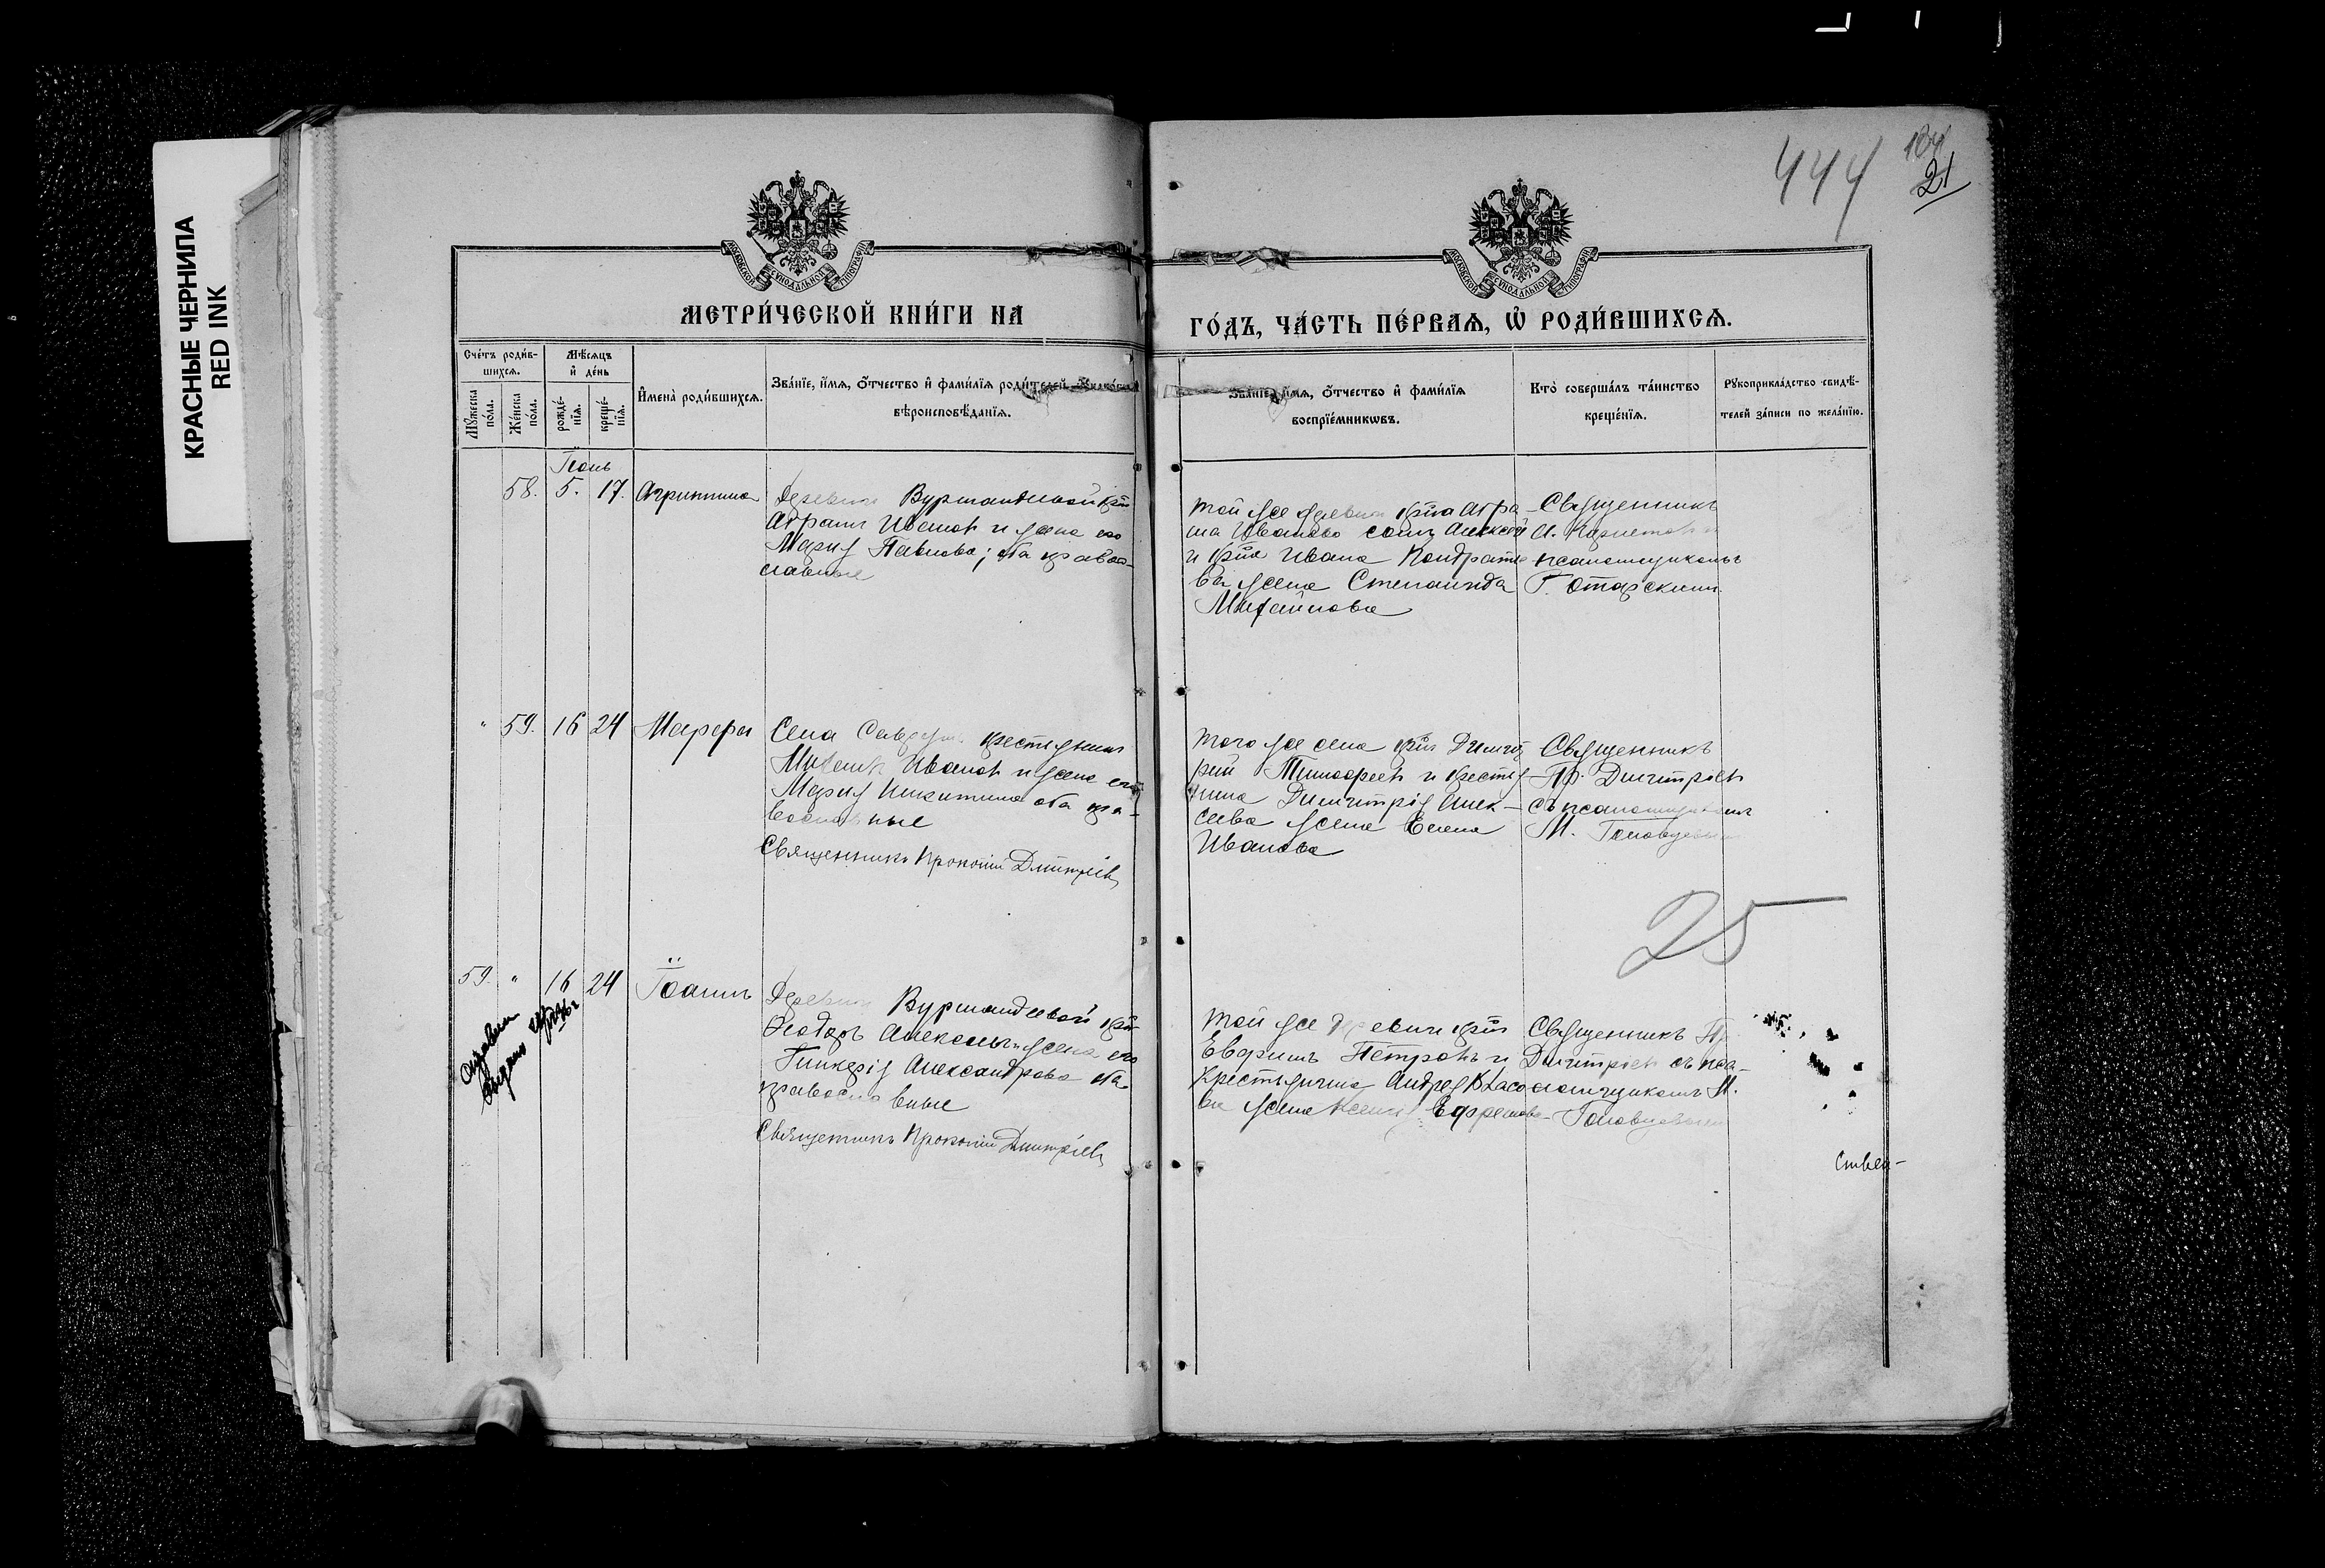 КРАСНЫЕ ЧЕРНИЛА
RED INK
444
21
МОСКОВСКОЙ СѴНОДАЛЬНОЙ ТИПОГРАФІИ
МОСКОВСКОЙ СѴНОДАЛЬНОЙ ТИПОГРАФІИ
МЕТРИ́ЧЕСКОЙ КНИ́ГИ НА
ГО́ДЪ, ЧА́СТЬ ПЕ́РВАЯ, Ѡ РОДИ́ВШИХСЯ.
Сче́тъ роди́в-
шихся.
Мѣ́сяцъ
и де́нь
Му́жеска по́ла.
Же́нска по́ла.
рожде́-
нїя.
креще́-
нїя.
Имена̀ роди́вшихся.
Зва́нїе, и́мя, о́тчество и фами́лїя роди́телей
вѣроисповѣ́данїя.
Зва́нїе, и́мя, о́тчество и фами́лїя
воспрїе́мникѡвъ.
Кто̀ соверша́лъ та́инство
креще́нїя.
Рукоприкла́дство свидѣ́-
телей за́писи по жела́нїю.
Іюнь
58. 5. 17. Агриппина
Деревни Вурмандеевой кр
Аѳрамъ Ивановъ и жена его
Марія Павлова; оба право-
славные
Той же деревни кр Аѳра-
ма Иванова сынъ Алексѣй
и кр Ивана Кондратье
ва жена Степанида
Михайлова
Священникъ
псаломщикомъ
Г. Отарскимъ
" 59. 16 24 Марѳа
Села крестьянинъ
Михаилъ Ивановъ и жена его
Марія Никитина оба пра-
вославные
Священникъ Прокопій Дмитріевъ
Того же села кр Димит
рій Тимоѳеевъ и крестья
нина Димитрія Алек-
сѣева жена Елена
Иванова
Священникъ
Пр. Димитріевъ
съ псаломщикомъ
М. Головцевымъ
25
59. " 16 24 Іоаннъ
Деревни Вурмандеевой кр
Ѳеодоръ Алексѣевъ и жена его
Гликерія Александрова оба
православные
Священникъ Прокопій Дмитріевъ
Той же деревни кр
Евфимъ Петровъ и
Крестьянина Андрея Власо
ва жена Ксенія Ефремова
Священникъ Пр
Димитріевъ съ пса-
ломщикомъ М.
Головцевымъ